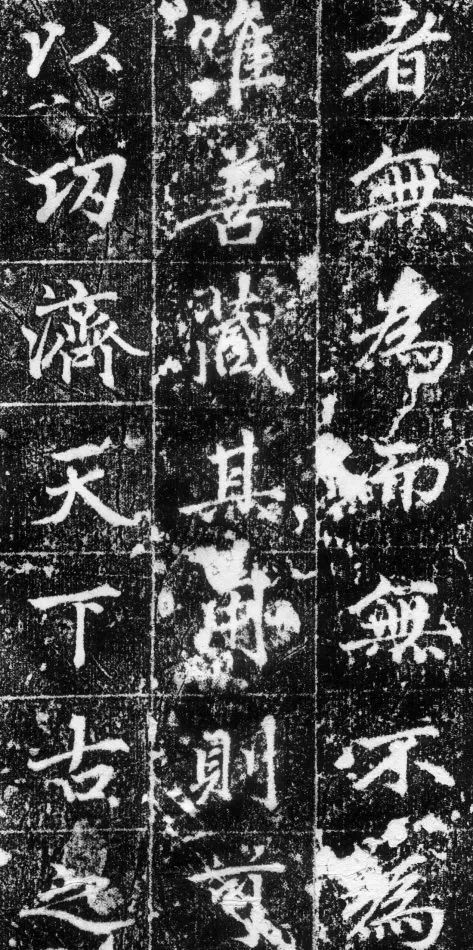 者無為而無不為
唯善藏其用則可
以功濟天下古之